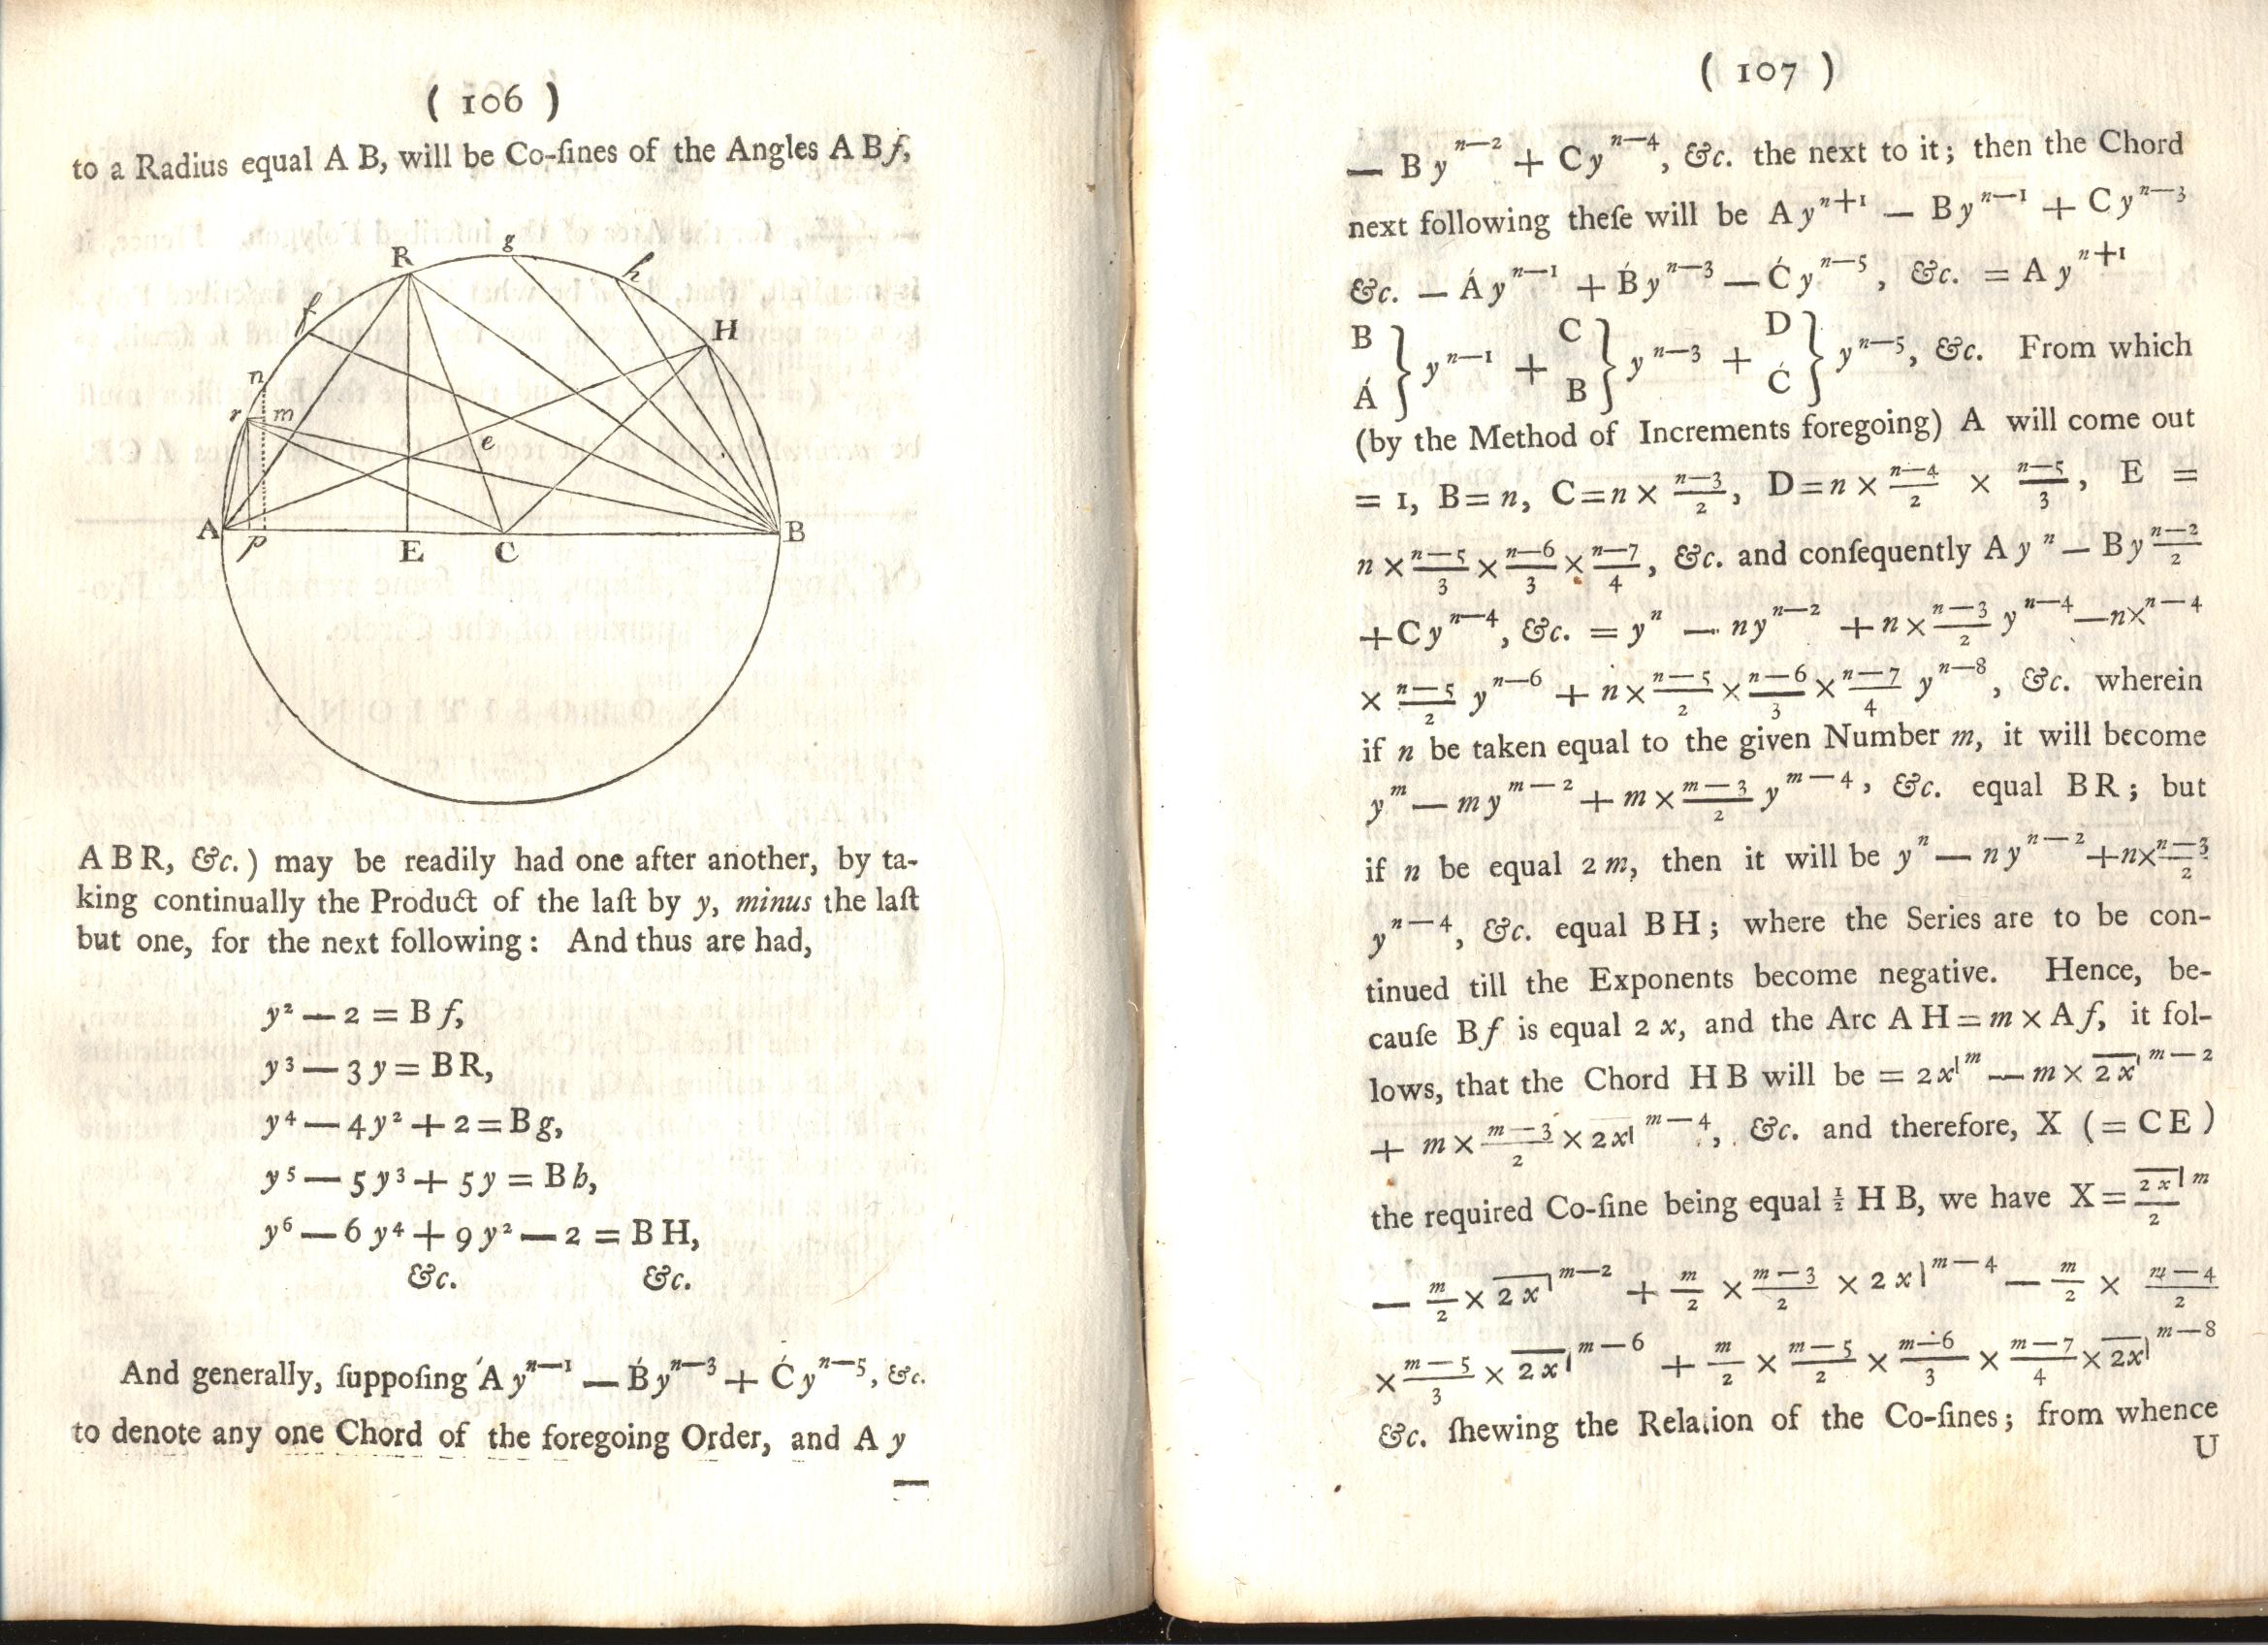 ( 106 )
to a Radius equal A B, will be Co-ſines of the Angles A B f,
R
g
h
f
H
n
r
m
e
A
p
E
C
B
A B R, &c.) may be readily had one after another, by ta-
king continually the Product of the laſt by y, minus the laſt
but one, for the next following: And thus are had,
y² — 2 = B f,
y³ — 3 y = B R,
y⁴ — 4 y² + 2 = B g,
y⁵ — 5 y³ + 5 y = B h,
y⁶ — 6 y⁴ + 9 y² — 2 = B H,
&c. &c.
And generally, ſuppoſing Á y^{n—1} — B́ y^{n—3} + Ć y^{n—5}, &c.
to denote any one Chord of the foregoing Order, and A y
—
( 107 )
— B y^{n—2} + C y^{n—4}, &c. the next to it; then the Chord
next following theſe will be A y^{n+1} — B y^{n—1} + C y^{n—3}
&c. — Á y^{n—1} + B́ y^{n—3} — Ć y^{n—5}, &c. = A y^{n+1}
B C D
} y^{n—1} + } y^{n—3} + } y^{n—5}, &c. From which
Á B Ć
(by the Method of Increments foregoing) A will come out
= 1, B = n, C = n × \frac{n—3}{2}, D = n × \frac{n—4}{2} × \frac{n—5}{3}, E =
n × \frac{n—5}{3} × \frac{n—6}{3} × \frac{n—7}{4}, &c. and conſequently A y^{n} — B y \frac{n—2}{2}
+ C y^{n—4}, &c. = y^{n} — n y^{n—2} + n × \frac{n—3}{2} y^{n—4} — n × ^{n—4}
× \frac{n—5}{2} y^{n—6} + n × \frac{n—5}{2} × \frac{n—6}{3} × \frac{n—7}{4} y^{n—8}, &c. wherein
if n be taken equal to the given Number m, it will become
y^{m} — m y^{m—2} + m × \frac{m—3}{2} y^{m—4}, &c. equal B R; but
if n be equal 2 m, then it will be y^{n} — n y^{n—2} + n × \frac{n—3}{2}
y^{n—4}, &c. equal B H; where the Series are to be con-
tinued till the Exponents become negative. Hence, be-
cauſe B f is equal 2 x, and the Arc A H = m × A f, it fol-
lows, that the Chord H B will be = 2x|^{m} — m × \overline{2x}|^{m—2}
+ m × \frac{m—3}{2} × 2x|^{m—4}, &c. and therefore, X (= C E)
the required Co-ſine being equal ½ H B, we have X = \frac{\overline{2x}|^{m}}{2}
— \frac{m}{2} × \overline{2x}|^{m—2} + \frac{m}{2} × \frac{m—3}{2} × 2x|^{m—4} — \frac{m}{2} × \frac{m—4}{2}
× \frac{m—5}{3} × \overline{2x}|^{m—6} + \frac{m}{2} × \frac{m—5}{2} × \frac{m—6}{3} × \frac{m—7}{4} × \overline{2x}|^{m—8}
&c. ſhewing the Relation of the Co-ſines; from whence
U